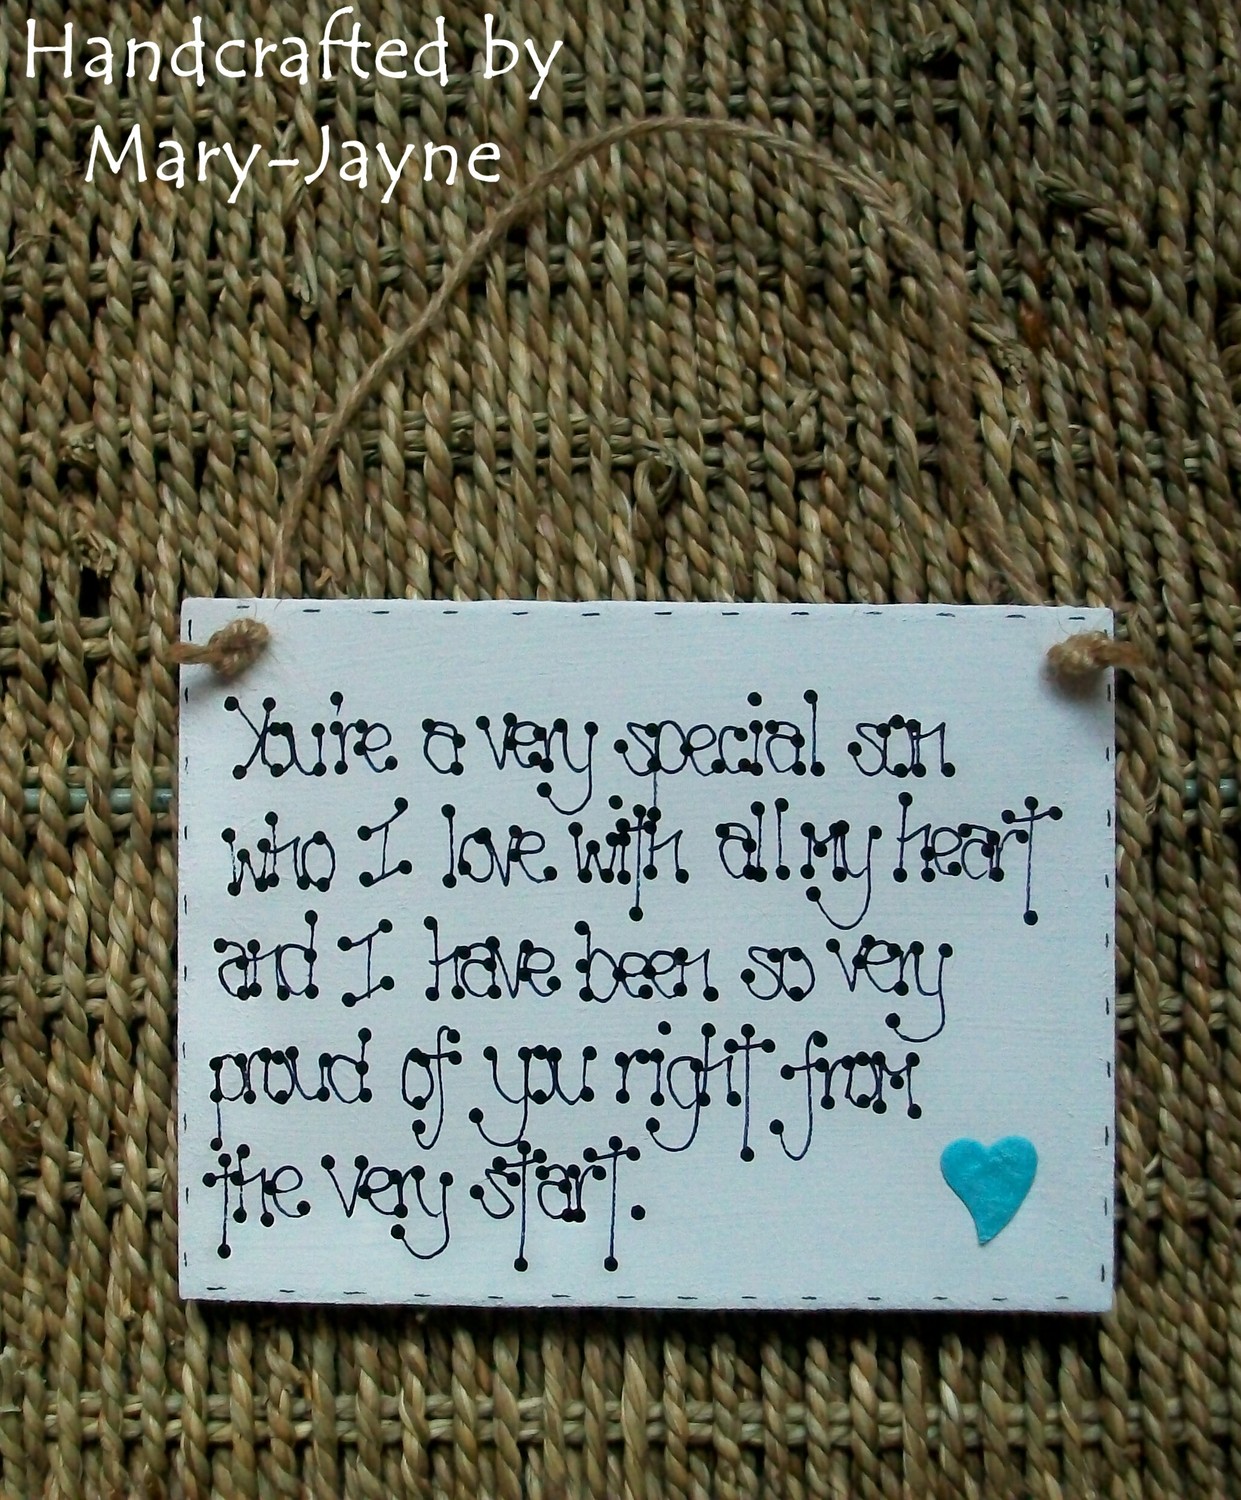 Handcrafted by
Mary-Jayne
You're a very special son
who I love with all my heart
and I have been so very
proud of you right from
the very start.